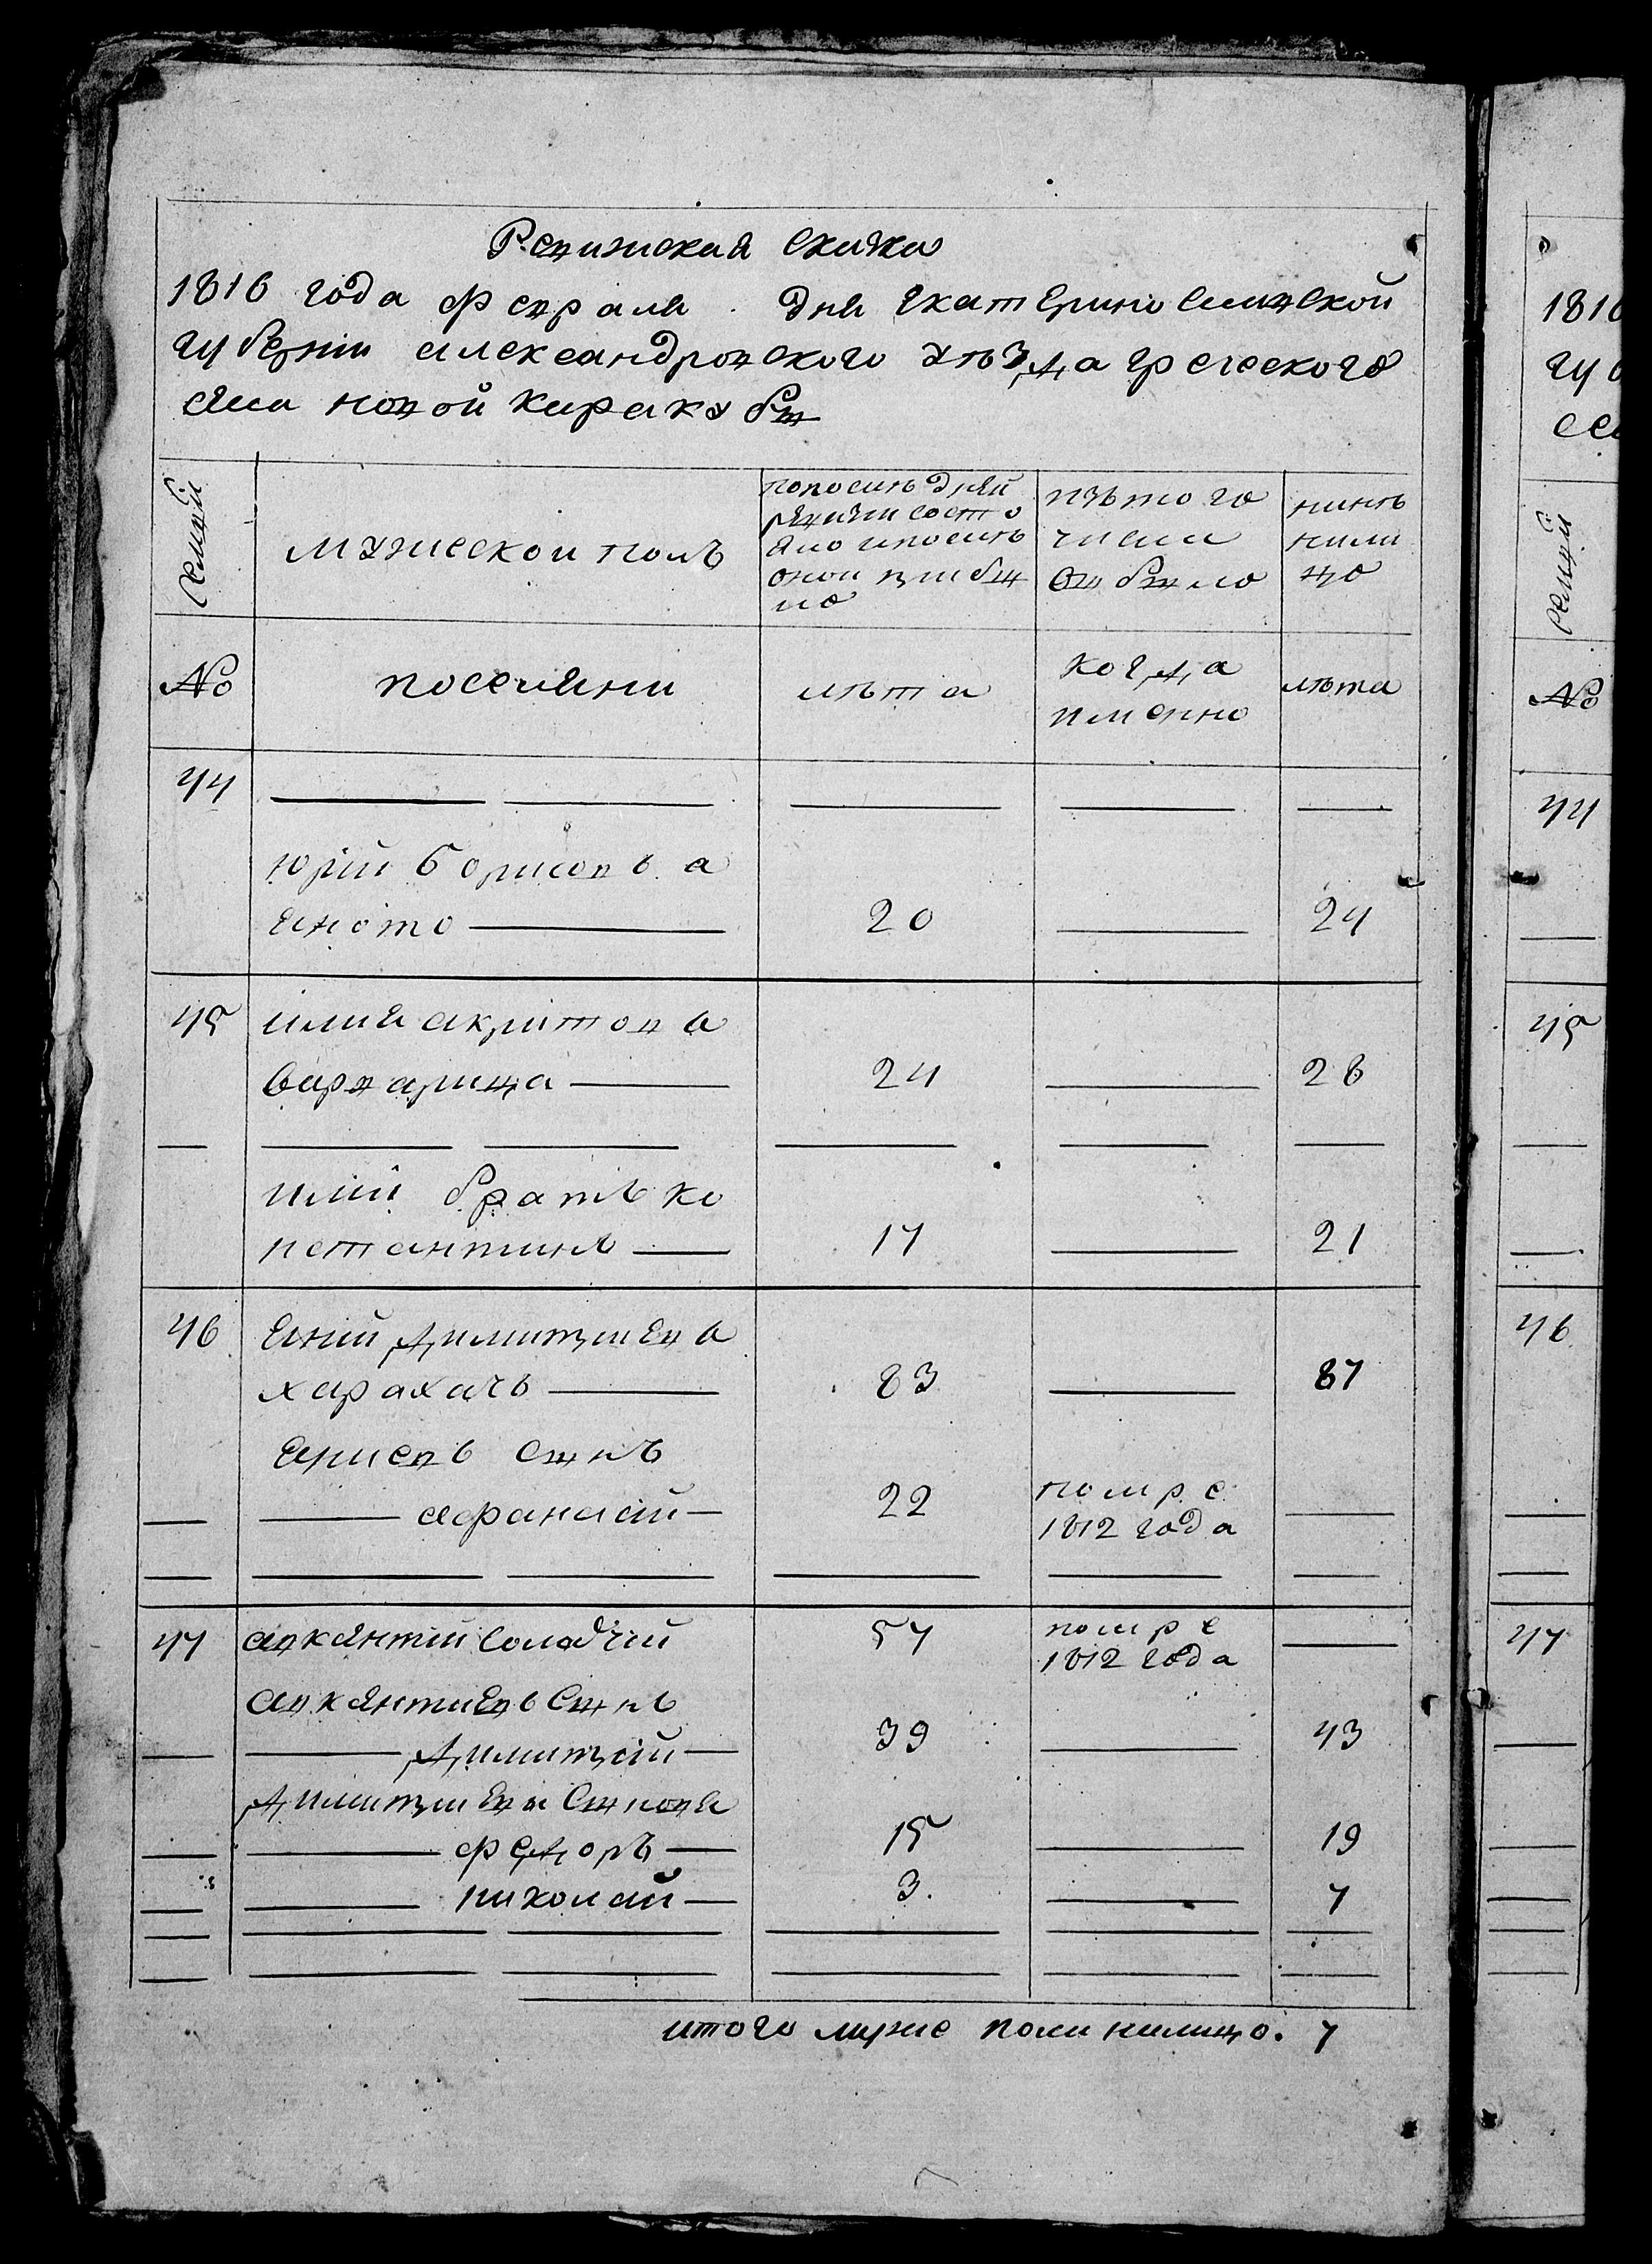 Ревижская скажа
1816 года февраля дня екатеринослаской
губернiи александровского уѣзда греческого
села новой каракубы
Семьи
мужескои полъ
попоследней
ревизiи состо
яло ипослѣ
оной прибы
ло
изътого
числа
выбыло
нинѣ
нали
цо
№
поселяни
лѣта
когда
именно
лѣта
44
юрiй борисовъ а
20
24
45
илия акритовъ
24
28
илiи братъ ко
нстантинъ
17
21
46
димитриевъ
харахачъ
83
87
сынъ
афанасiй
22
помре
1812 года
47
авксентiй
57
помре
1812 года
авксентиевъ сынъ
димитрiй
39
43
димитриева сыновя
федоръ
15
19
николай
3.
7
итого муже пола налицо. 7
1816
губ
сел
Семьи
№
44
45
46
47